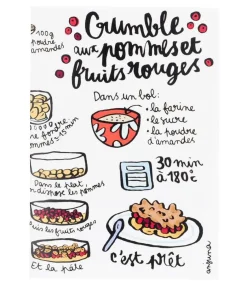 Crumble
aux pommes et
fruits rouges
100g
poudre
amandes
Dans un bol:
• la farine
• le sucre
• la poudre
d'amandes
fondre
pommes ≃ 15 min
Dans le plat,
on dispose les pommes
puis les fruits rouges
Et la pâte
30 min
à 180°
c'est prêt